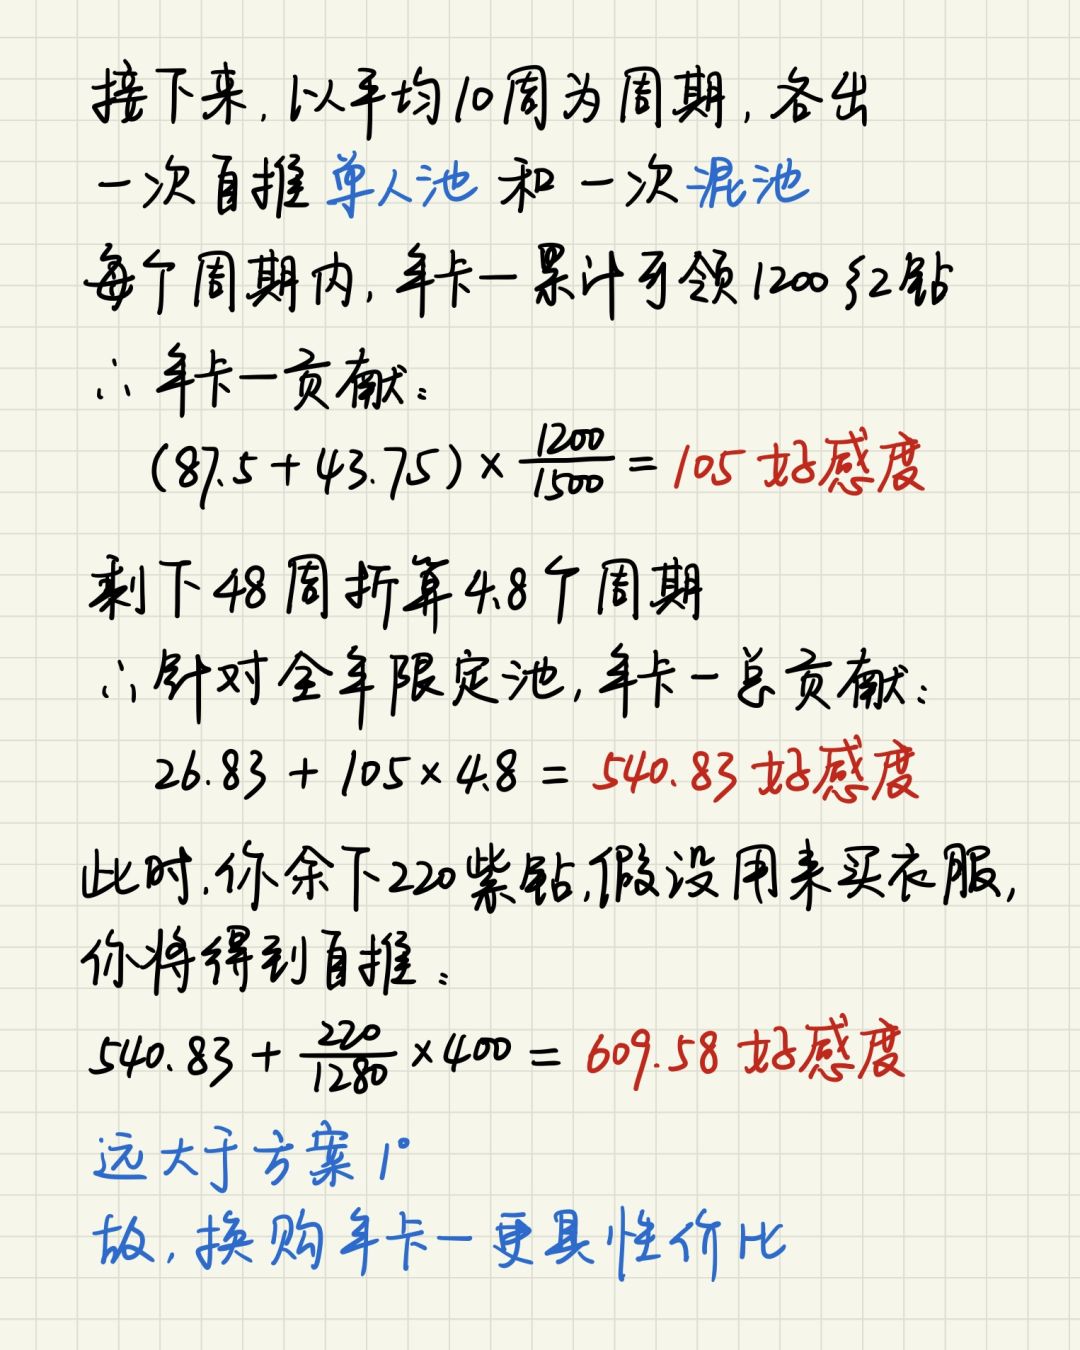 接下来,以平均10周为周期,各出
一次自推单人池和一次混池
每个周期内,年卡一累计可领1200红钻
∴年卡一贡献:
(87.5+43.75)×1200/1500=105好感度
剩下48周折算4.8个周期
∴针对全年限定池,年卡一总贡献:
26.83+105×4.8=540.83好感度
此时,你余下220紫钻,假设用来买衣服,
你将得到自推:
540.83+220/1280×400=609.58好感度
远大于方案1°
故,换购年卡一更具性价比